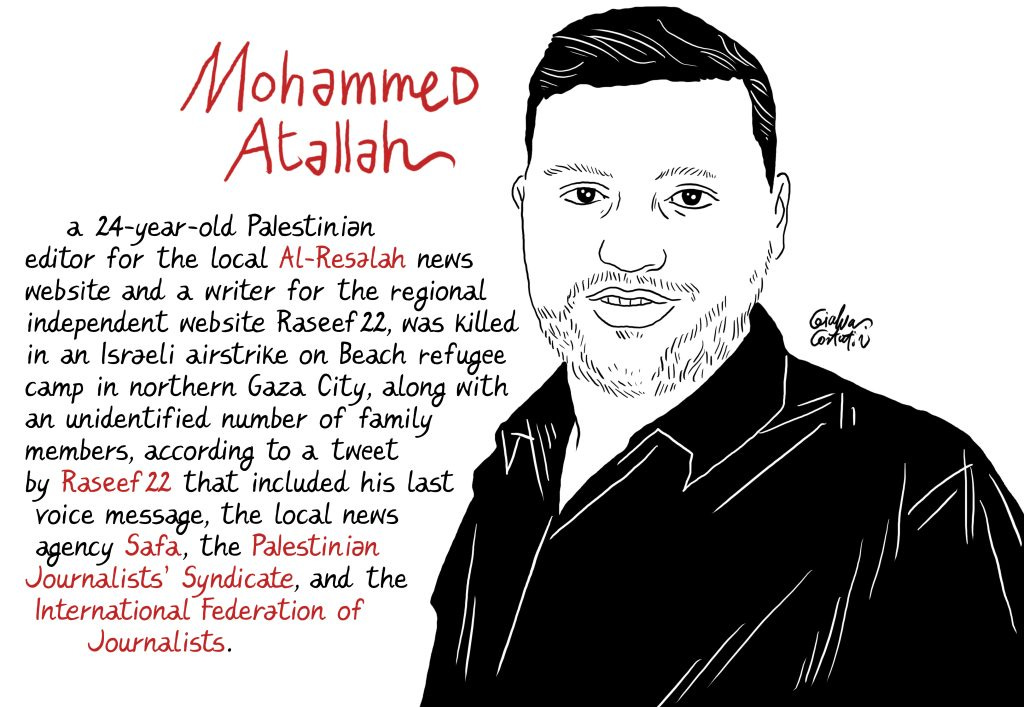 Mohammed
Atallah
a 24-year-old Palestinian
editor for the local Al-Resalah news
website and a writer for the regional
independent website Raseef22, was killed
in an Israeli airstrike on Beach refugee
camp in northern Gaza City, along with
an unidentified number of family
members, according to a tweet
by Raseef22 that included his last
voice message, the local news
agency Safa, the Palestinian
Journalists' Syndicate, and the
International Federation of
Journalists.